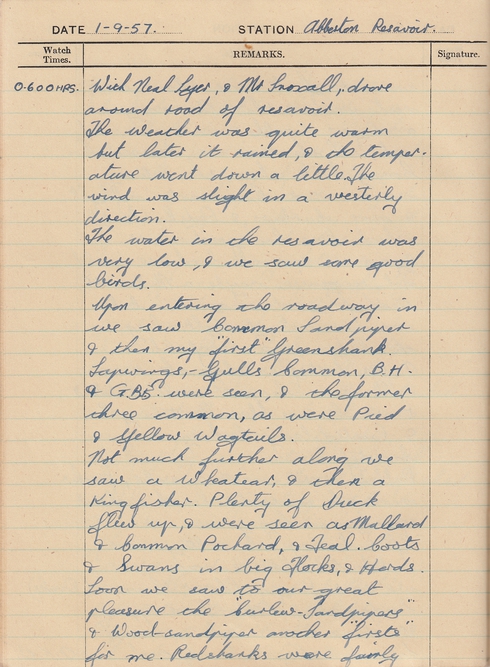 DATE 1-9-57. STATION Abberton Resavoir.
Watch Times. REMARKS. Signature.
0.600HRS. With Neal Eyer, & Mr Snoxall, drove
around road of resavoir.
The weather was quite warm
but later it rained, & the temper-
ature went down a little. The
wind was slight in a westerly
direction.
The water in the resavoir was
very low, & we saw some good
birds.
Upon entering the roadway in
we saw Common Sandpiper
& then my "first" Greenshank.
Lapwings,- Gulls Common, B.H.
& G.BB. were seen, & the former
three common, as were Pied
& Yellow Wagtails.
Not much further along we
saw a Wheatear, & then a
Kingfisher. Plenty of Duck
flew up, & were seen as Mallard
& Common Pochard, & Teal. Coots
& Swans in big flocks, & Herds.
Soon we saw to our great
pleasure the "Curlew-Sandpipers"
& Wood-sandpiper another "firsts"
for me. Redshanks were fairly